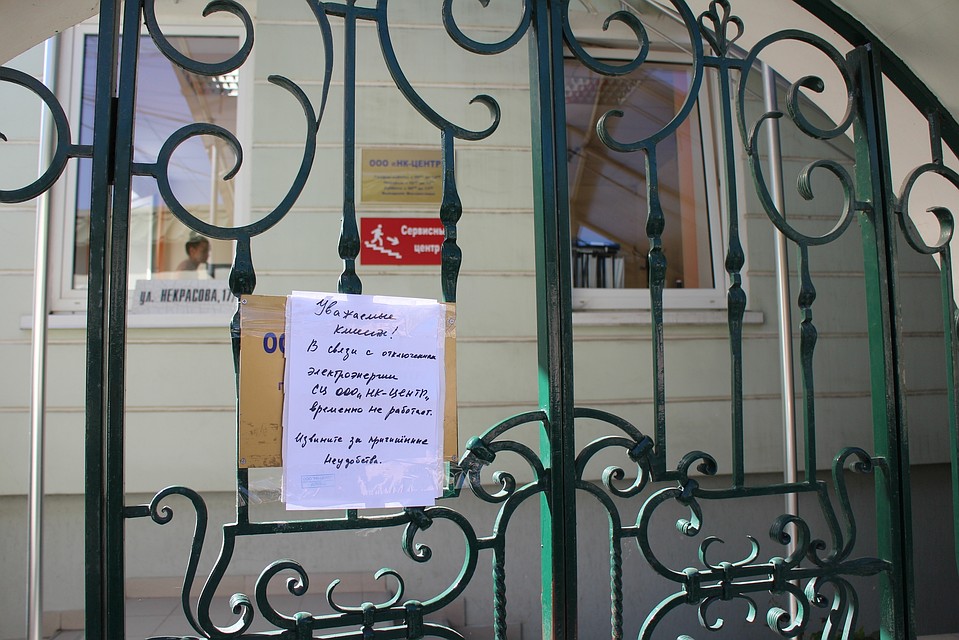 ООО «НК-ЦЕНТР
Сервисны
центр
ул. НЕКРАСОВА, 17
ОО
Уважаемые
клиенты!
В связи с отключением
электроэнергии
СЦ ООО „НК-ЦЕНТР„
временно не работает.
Извините за причинённые
неудобства.